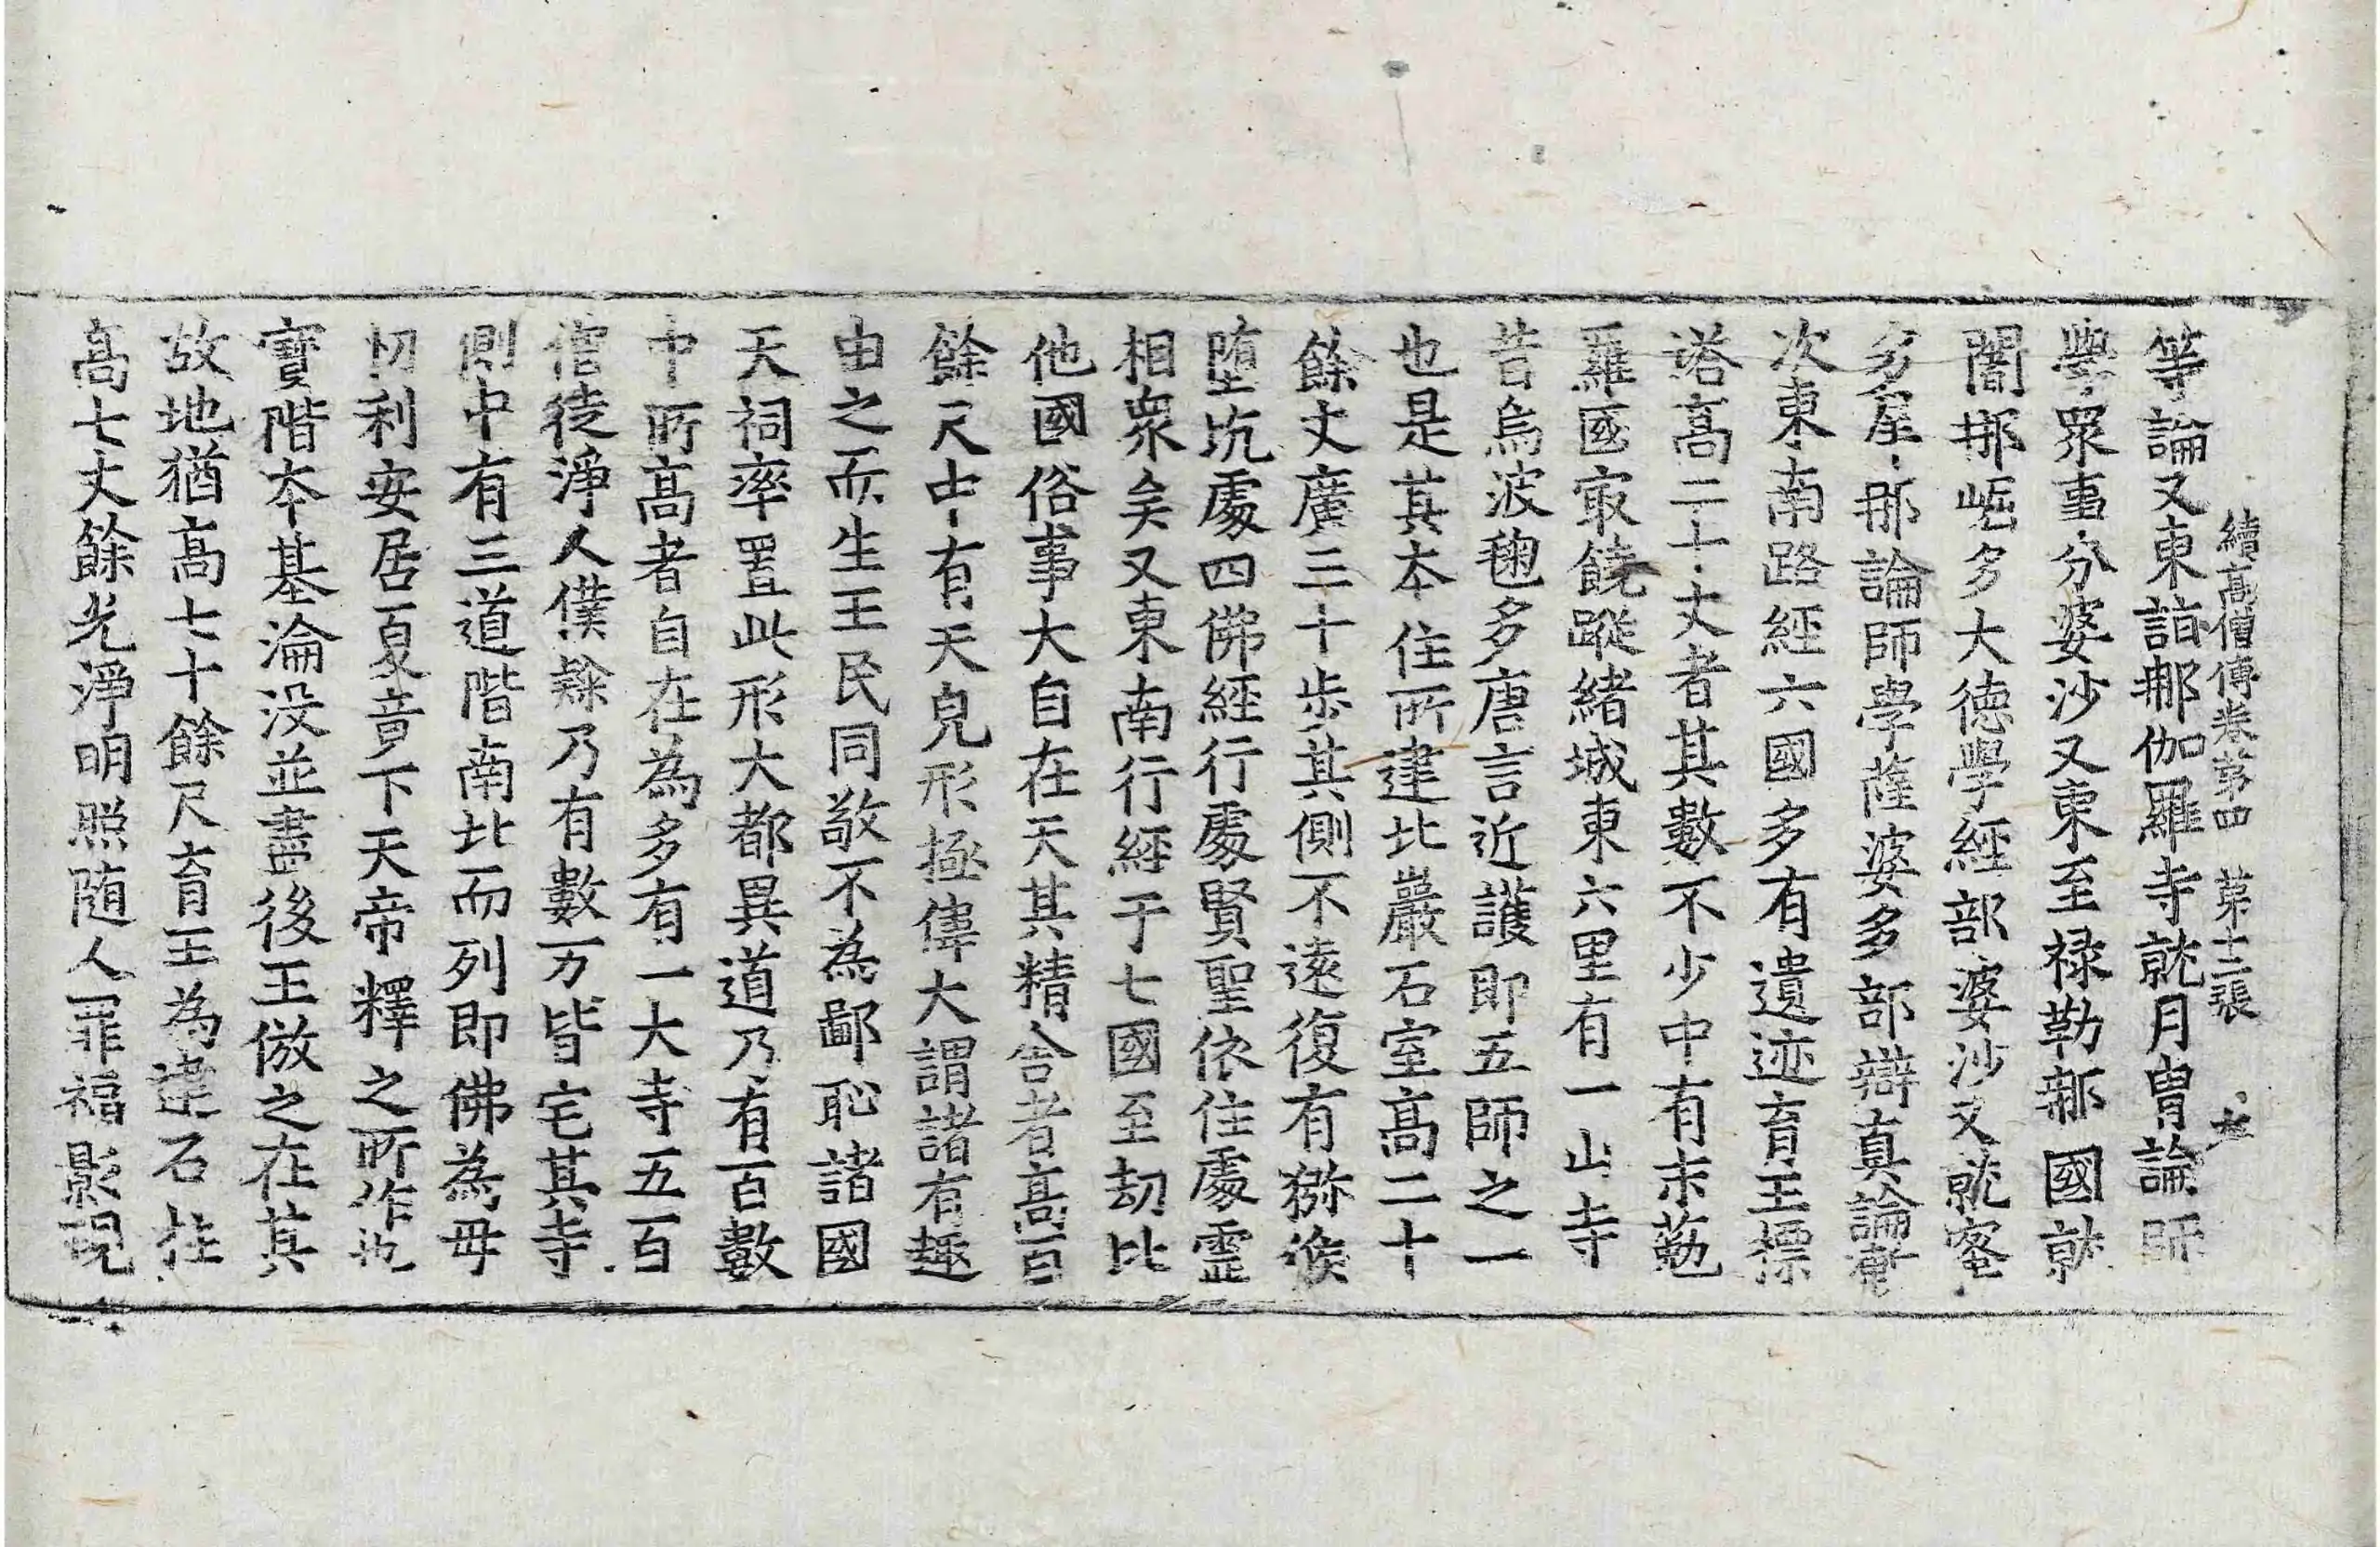 續高僧傳卷第四　第十二張
等論又東詣那伽羅寺就月胄論師
學衆事分婆沙又東至祿勒那國就
闍那崛多大德學經部婆沙又就蜜
多犀那論師學薩婆多部辯真論漸
次東南路經六國多有遺迹育王標
塔高二十丈者其數不少中有末菟
羅國㝡饒蹤緒城東六里有一山寺
昔烏波毱多唐言近護即五師之一
也是其本住所建北巖石室高二十
餘丈廣三十步其側不遠復有獼猴
墮坑處四佛經行處賢聖依住處靈
相衆矣又東南行經于七國至劫比
他國俗事大自在天其精舍者高百
餘尺中有天皃形極偉大謂諸有趣
由之而生王民同敬不為鄙恥諸國
天祠率置此形大都異道乃有百數
中所高者自在為多有一大寺五百
僧徒淨人僕隸乃有數万皆宅其寺
側中有三道階南北而列即佛為母
忉利安居夏竟下天帝釋之所作也
寶階本基淪没並盡後王倣之在其
故地猶高七十餘尺育王為建石柱
高七丈餘光淨明照隨人罪福影現